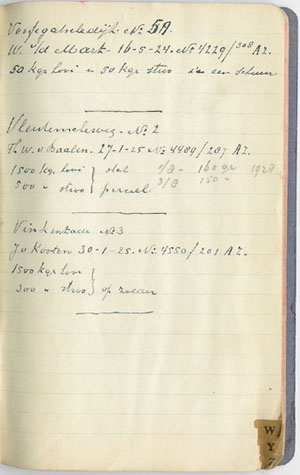 No 5A.
W. v/d Mark - 16-5-24. No 4229/308 A2.
50 kgr hooi en 50 kgr stroo in een schuur
Vleutenscheweg. No 2
Th. W. v. Baalen. 27-1-25 No 4409/287 A2.
1500 kgr. hooi } stal 1/8 - 160 gr 1928
500 " stroo } perceel 3/8 150 "
Vinkenkade No 3
J. v Kooten 30-1-25. No 4550/201 A2.
1500 kgr hooi }
300 " stroo } op zolder
W
Y
Z